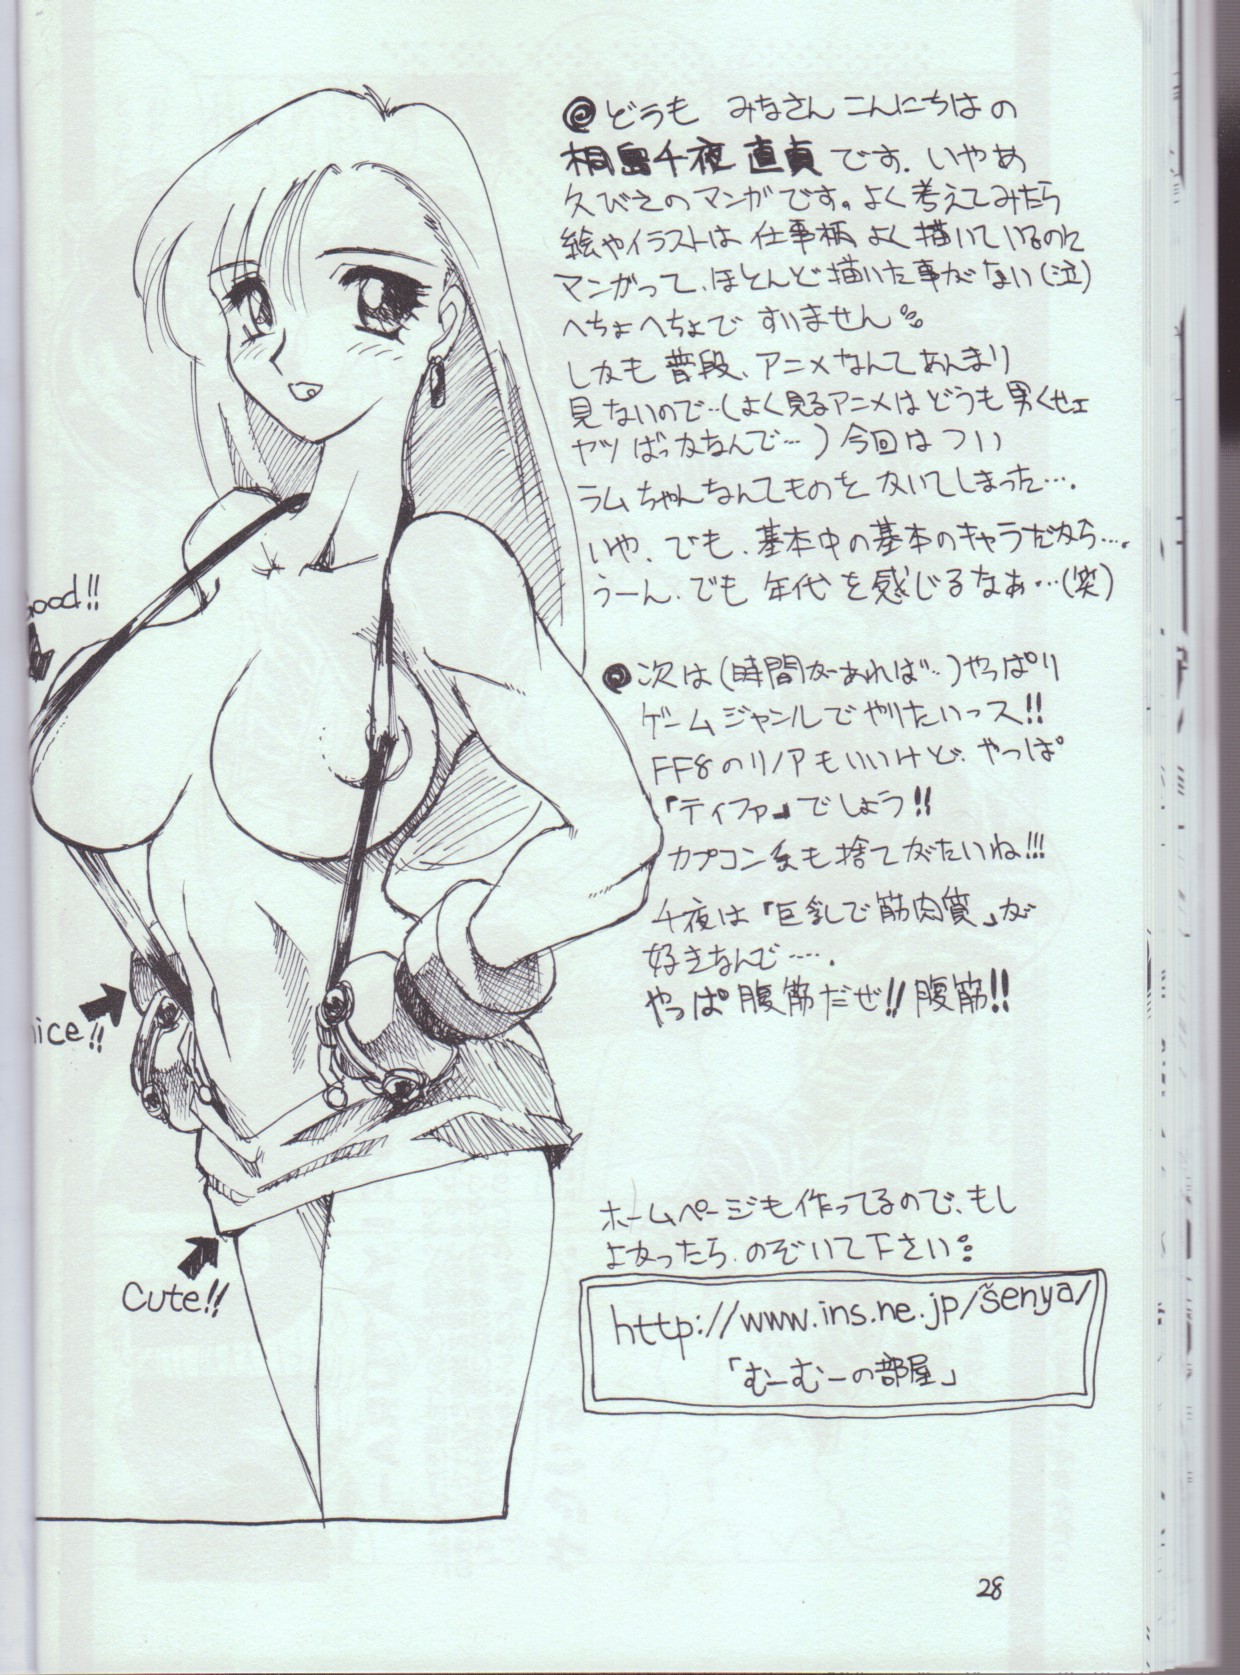 どうも みなさん こんにちはの
桐島千夜 直貞 です. いやぁ
久びさのマンガです。よく考えてみたら
絵やイラストは 仕事柄 よく描いているのに
マンガって、ほとんど描いた事がない(泣)
へちょへちょで すいません
しかも 普段、アニメなんてあんまり
見ないので…(よく見るアニメはどうも男くせェ
ヤツばっかなんで…)今回は つい
ラムちゃんなんてものを かいてしまった….
いや、でも、基本中の基本のキャラだから….
うーん、でも 年代を感じるなぁ…(笑)
次は(時間があれば…)やっぱり
ゲームジャンルで やりたいっス!!
FF8のリノアもいいけど、やっぱ
「ティファ」でしょう!!
カプコン系も捨てがたいね!!!
千夜は「巨乳で筋肉質」が
好きなんで….
やっぱ腹筋だぜ!!腹筋!!
ood!!
nice!!
Cute!!
ホームページも作ってるので、もし
よかったら、のぞいて下さい
http://www.ins.ne.jp/~senya/
「むーむーの部屋」
28